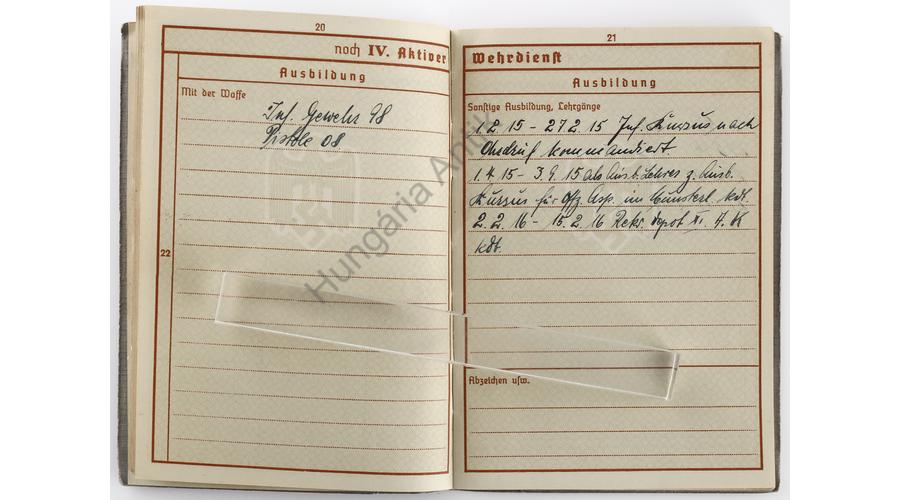 20
noch IV. Aktiver
Ausbildung
Mit der Waffe
Inf. Gewehr 98
Pistole 08
22
21
Wehrdienst
Ausbildung
Sonstige Ausbildung, Lehrgänge
1.2.15 - 27.2.15 Inf. Kursus nach
Ohrdruf kommandiert
1.4.15 - 3.9.15 als Ausb. Lehrer z. Ausb.
Kursus für Offz. Asp. im Munsterl. kdt.
2.2.16 - 15.2.16 Rekr. Depot XI. A.K
kdt.
Abzeichen usw.
Hungária Antik